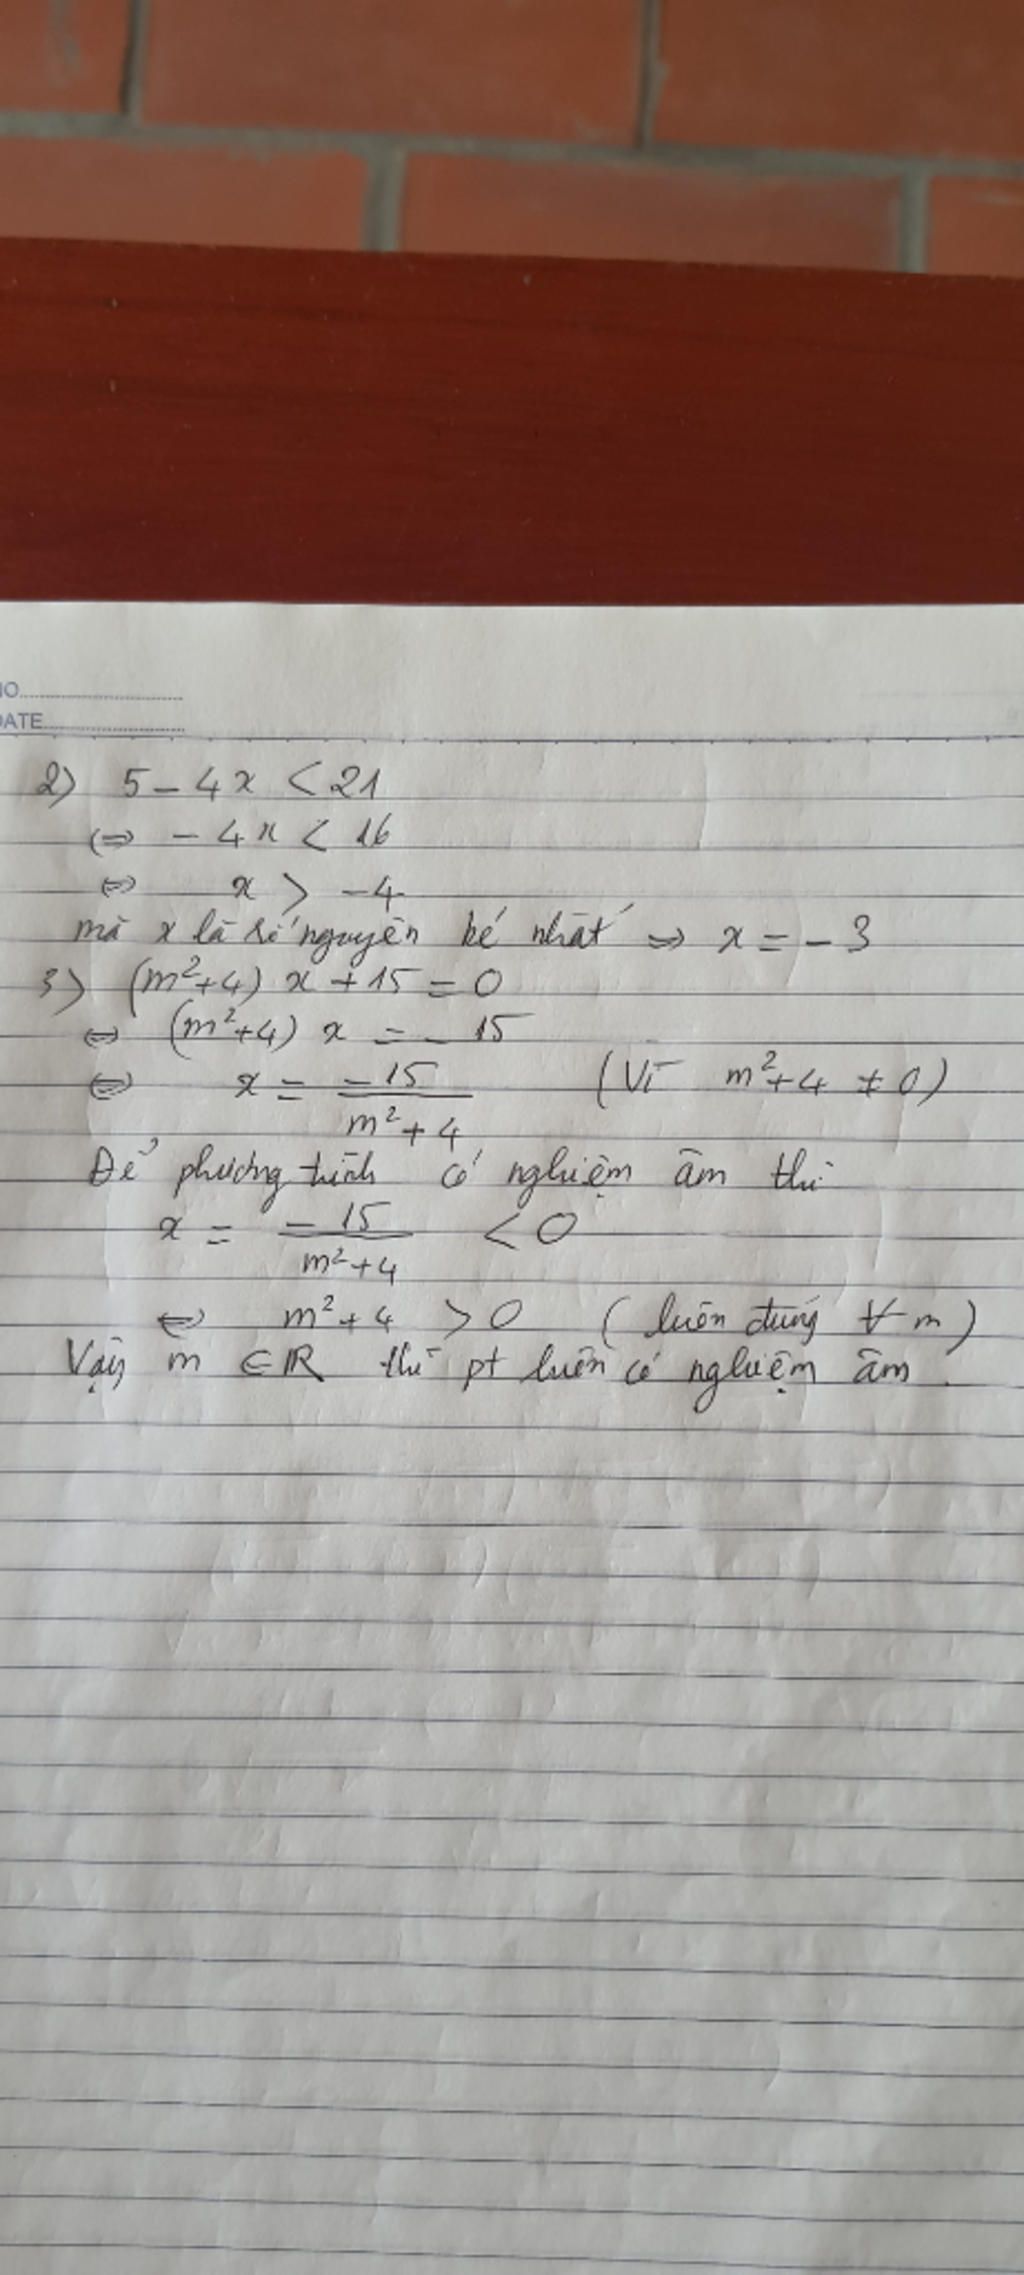 NO
DATE
2) 5 - 4x < 21
⇔ - 4x < 16
⇔ x > -4
mà x là số nguyên bé nhất ⇒ x = - 3
3) (m²+4) x + 15 = 0
⇔ (m²+4) x = - 15
⇔ x = -15/(m²+4) (Vì m²+4 ≠ 0)
Để phương trình có nghiệm âm thì
x = -15/(m²+4) < 0
⇔ m²+4 > 0 (luôn đúng ∀ m)
Vậy m ∈ ℝ thì pt luôn có nghiệm âm.